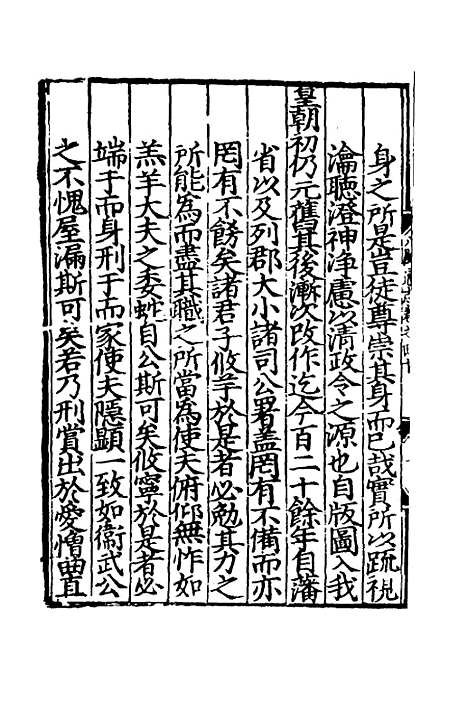 身之所是豈徒尊崇其身而已哉實所以疏視
瀹聽澄神浄慮以清政令之源也自版圖入我
皇朝初仍元舊其後漸次改作迄今百二十餘年自藩
省以及列郡大小諸司公署盖罔有不備而亦
罔有不餝矣諸君子攸芋於是者必勉其力之
所能為而盡其職之所當為使夫俯仰無怍如
羔羊大夫之委虵自公斯可矣攸寧於是者必
端于而身刑于而家使夫隱顯一致如衞武公
之不愧屋漏斯可矣若乃刑賞出於愛憎曲直